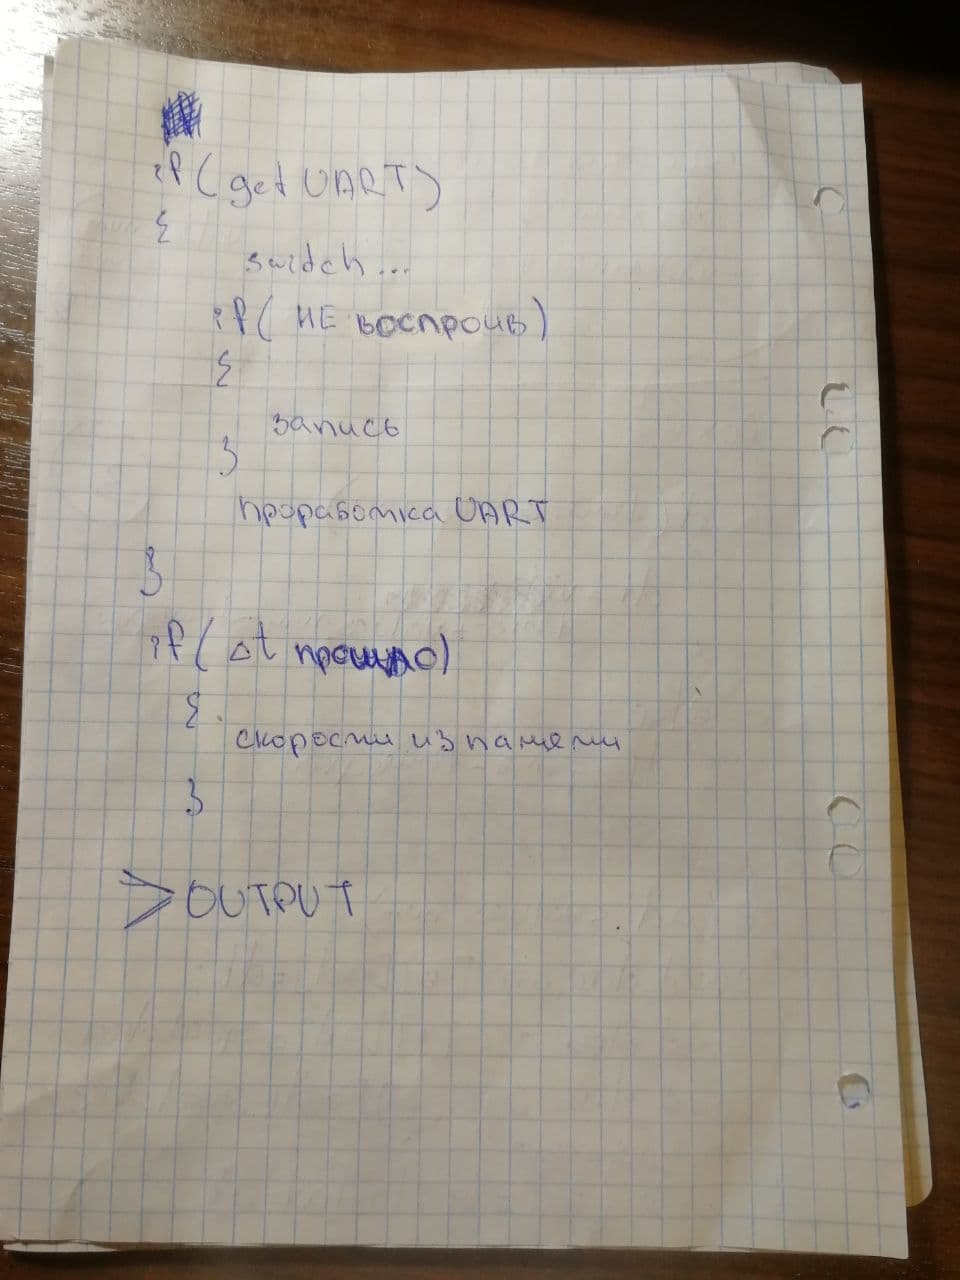 if (get UART)
{
switch...
if( НЕ воспроив)
{
запись
}
проработка UART
}
if( Δt прошло)
{
скорости из памяти
}
> OUTPUT